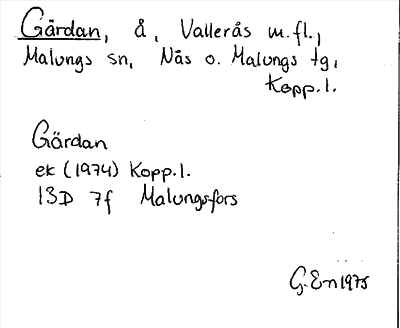 Gärdan, å, Vallerås m.fl.,
Malungs sn, Nås o. Malungs tg,
Kopp.l.
Gärdan
ek (1974) Kopp.l.
13D 7f Malungsfors
G.En 1975